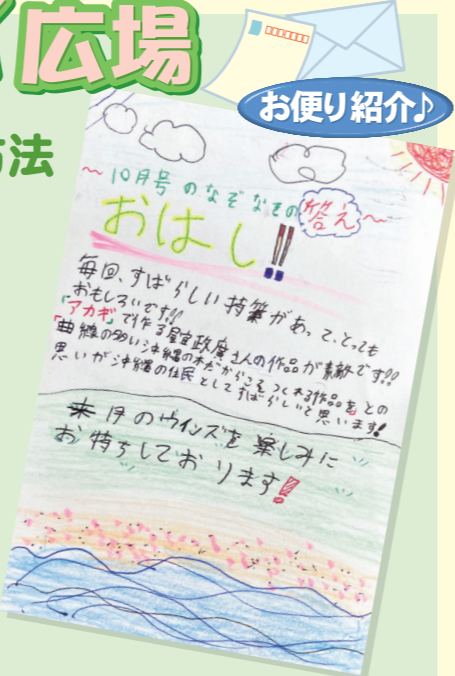 広場
お便り紹介♪
法
～10月号のなぞなぞの答え～
おはし!!
毎回、すばらしい特集があって、とっても
おもしろいです!!
「アカギ」で作る屋宜政廣さんの作品が素敵です!!
「曲線の多い沖縄の木だからこそつくれる作品を」との
思いが沖縄の住民としてすばらしいと思います!
来月のウィンズを楽しみに
お待ちしております!